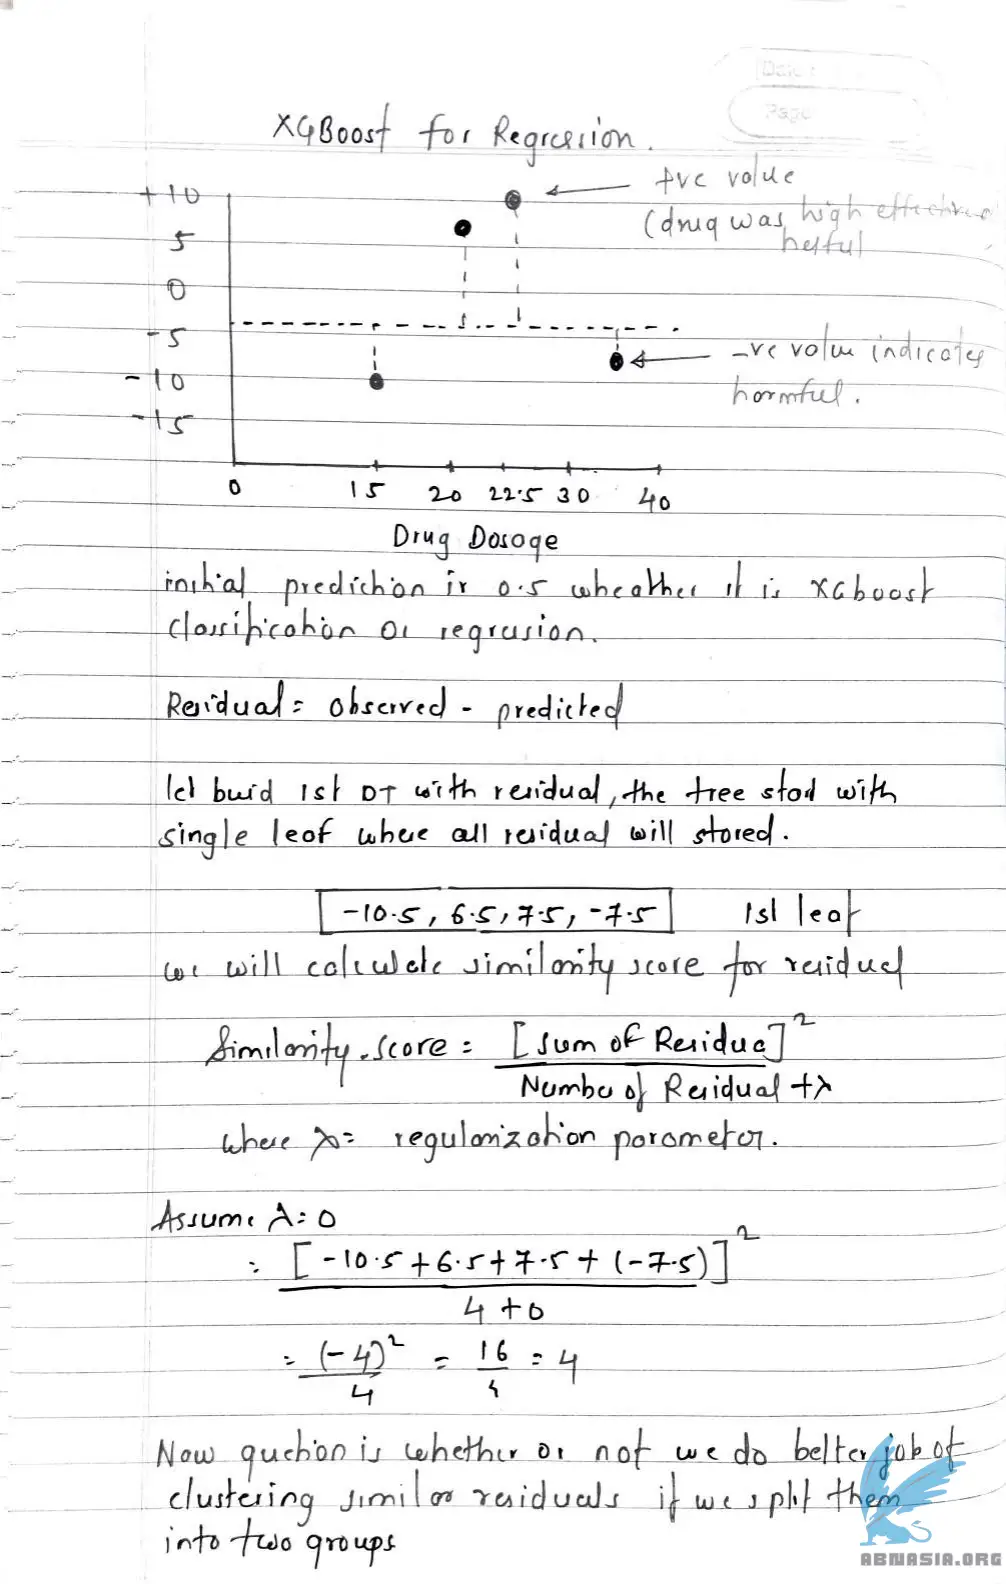 Date :
Page
XGBoost for Regression.
+10
5
0
-5
-10
-15
+ve value
(drug was high effective
helful
-ve value indicates
harmful.
0 15 20 22.5 30 40
Drug Dosage
initial prediction is 0.5 wheather it is XGboost
classification or regression.
Residual = observed - predicted
let buid 1st DT with residual, the tree start with
single leaf where all residual will stored.
-10.5, 6.5, 7.5, -7.5 1st leaf
we will calculate similarity score for residual
Similarity score = [sum of Residual]²
Number of Residual + λ
where λ = regularization parameter.
Assume λ = 0
= [-10.5 + 6.5 + 7.5 + (-7.5)]²
4 + 0
= (-4)² = 16 = 4
4 4
Now quetion is whether or not we do better job of
clustering similar residuals if we split them
into two groups
ABMASIA.ORG